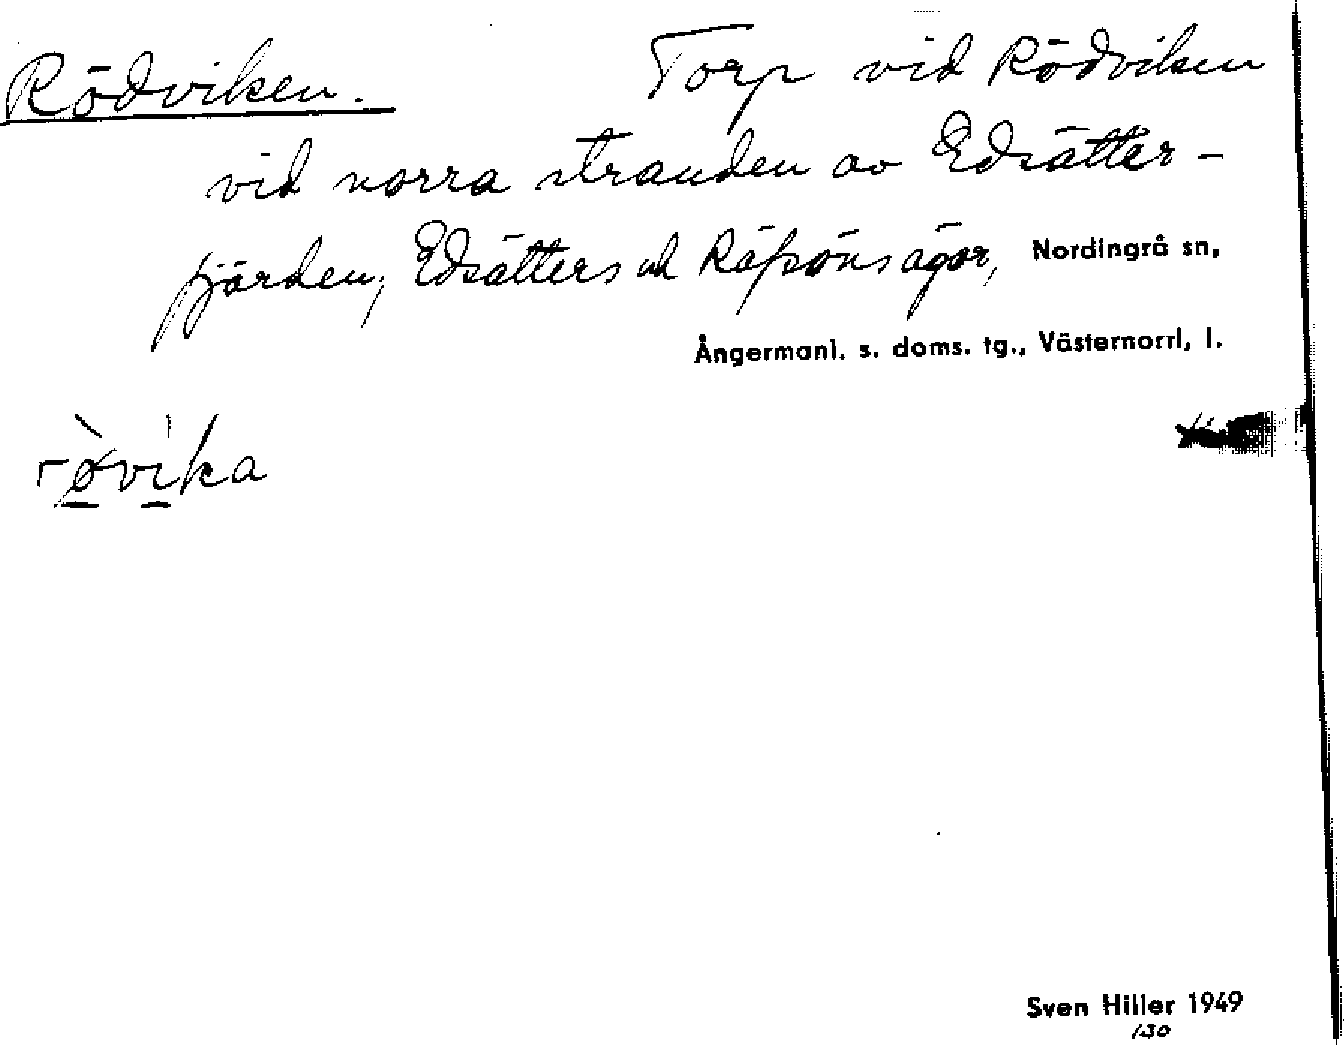 Rödviken. Torp vid Rödviken
vid norra stranden av Edsätter-
fjärden, Edsätters och Räfsöns ägor, Nordingrå sn,
Ångermanl. s. doms. tg., Västernorrl, l.
røvika
Sven Hiller 1949